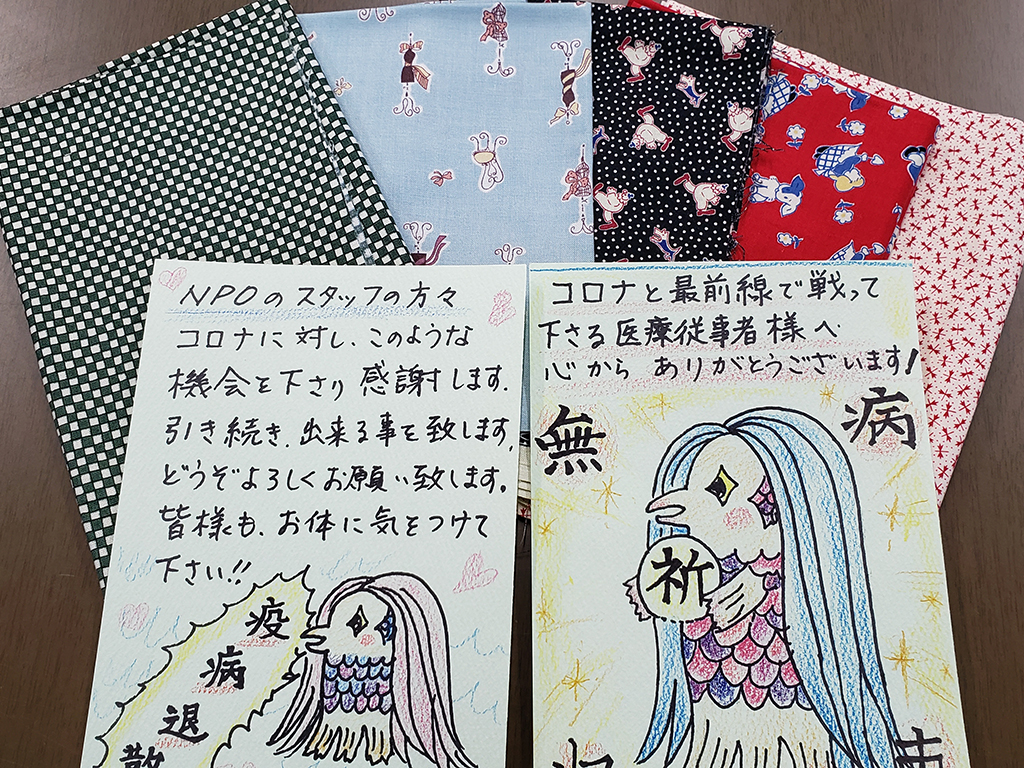 NPOのスタッフの方々
コロナに対し、このような
機会を下さり感謝します.
引き続き、出来る事を致します.
どうぞよろしくお願い致します。
皆様も、お体に気をつけて
下さい!!
疫
病
退
散
コロナと最前線で戦って
下さる医療従事者様へ
心から ありがとうございます!
無 病
祈